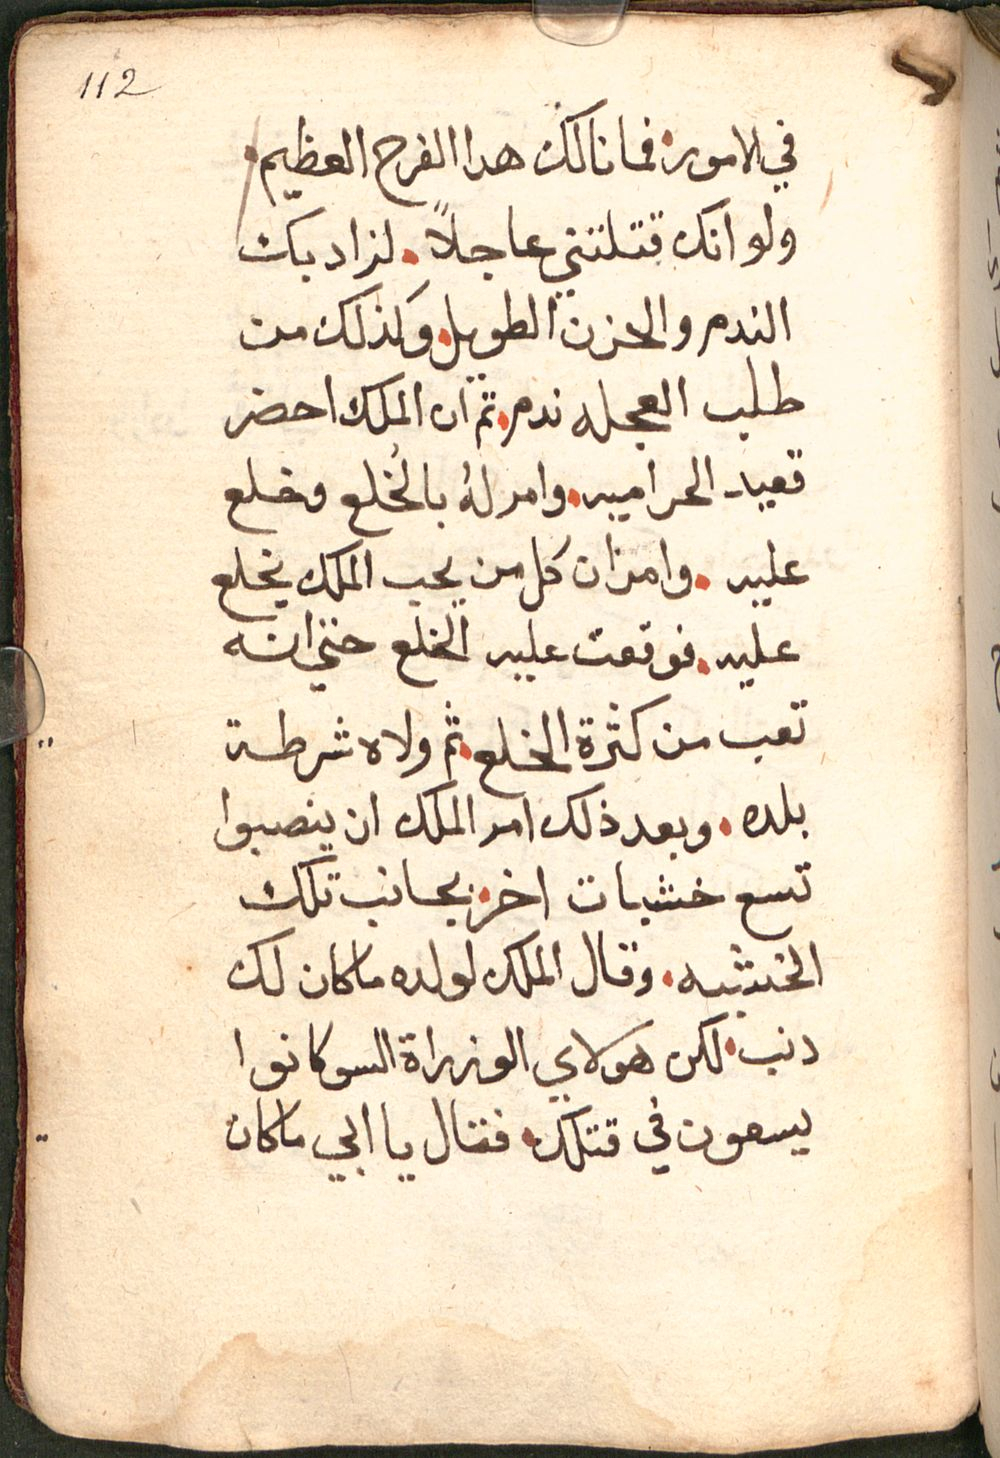 112
في الامور فما نالك هدا الفرح العظيم
ولو انك قتلتني عاجلاً لزاد بك
الندم والحزن الطويل وكذلك من
طلب العجله ندم ثم ان الملك احضر
قعيد الحراميه وامر لهُ بالخُلع وخلع
عليه وامر ان كل من يحب الملك يخلع
عليه فوقعت عليه الخلع حتي انه
تعب من كثرة الخلع ثم ولاه شرطة
بلده وبعد ذلك امر الملك ان ينصبوا
تسع خشبات اخر بجانب تلك
الخشبه وقال الملك لولده ما كان لك
دنب لكن هولاي الوزراة السو كانوا
يسعون في قتلك فقال يا ابي ما كان